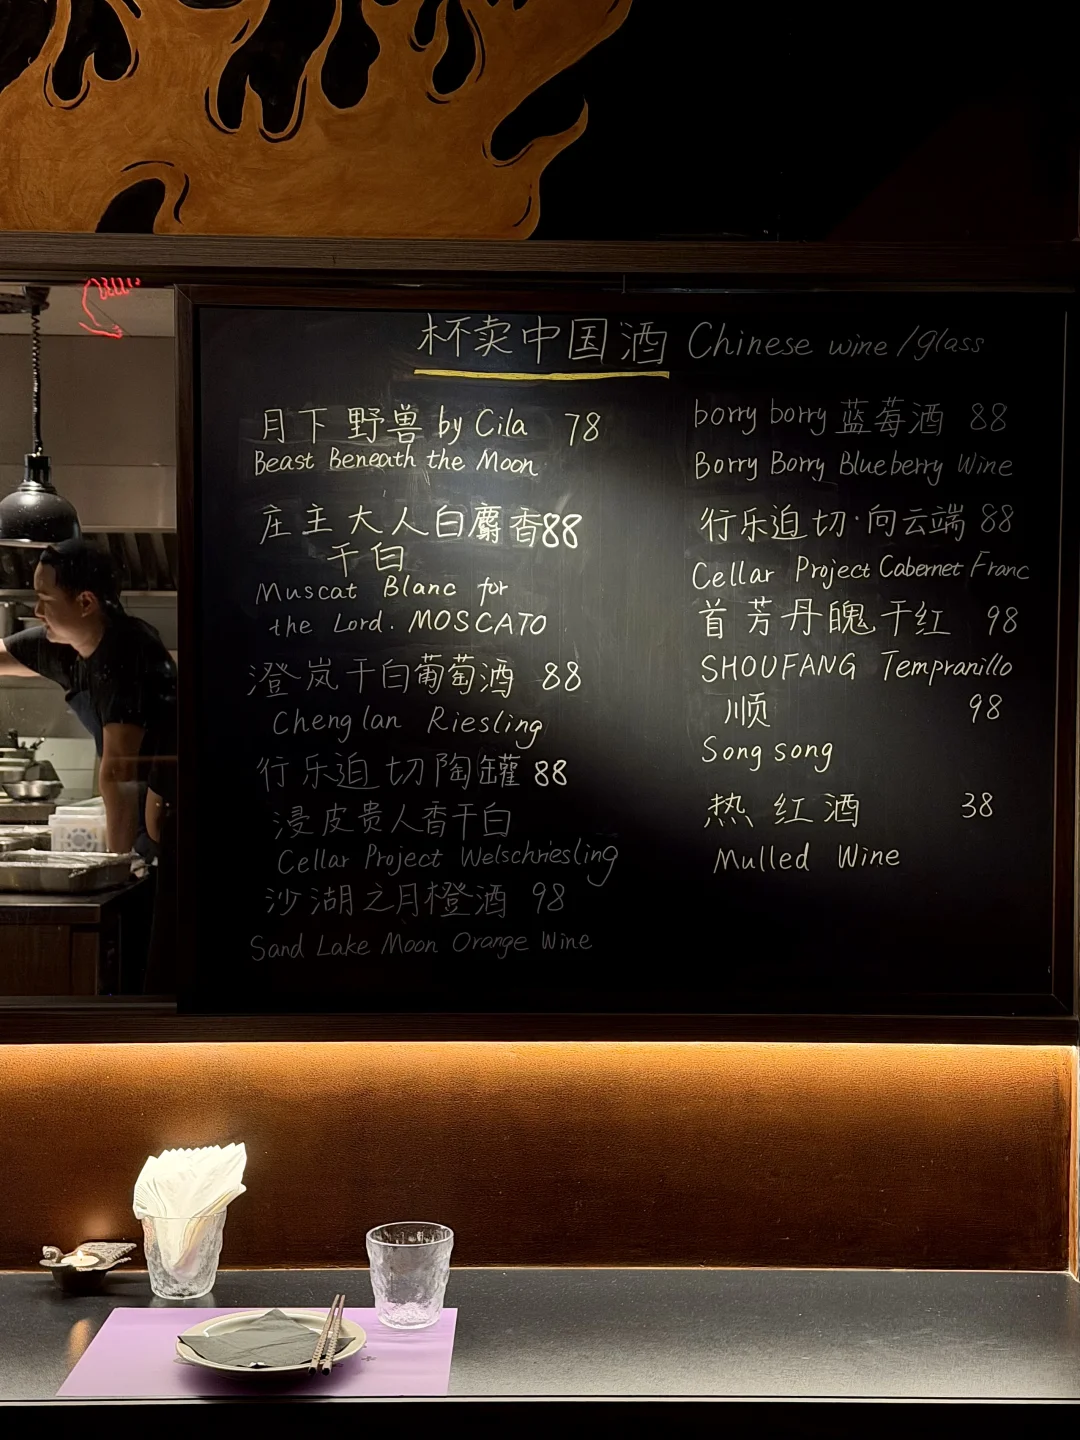 杯卖中国酒 Chinese wine/glass
月下野兽 by Cila 78
Beast Beneath the Moon
庄主大人白麝香88
干白
Muscat Blanc for
the Lord. MOSCATO
澄岚干白葡萄酒 88
Chenglan Riesling
行乐迫切陶罐88
浸皮贵人香干白
Cellar Project Welschriesling
沙湖之月橙酒 98
Sand Lake Moon Orange Wine
borry borry 蓝莓酒 88
Borry Borry Blueberry Wine
行乐迫切·向云端 88
Cellar Project Cabernet Franc
首芳丹魄干红 98
SHOUFANG Tempranillo
顺 98
Song song
热红酒 38
Mulled Wine